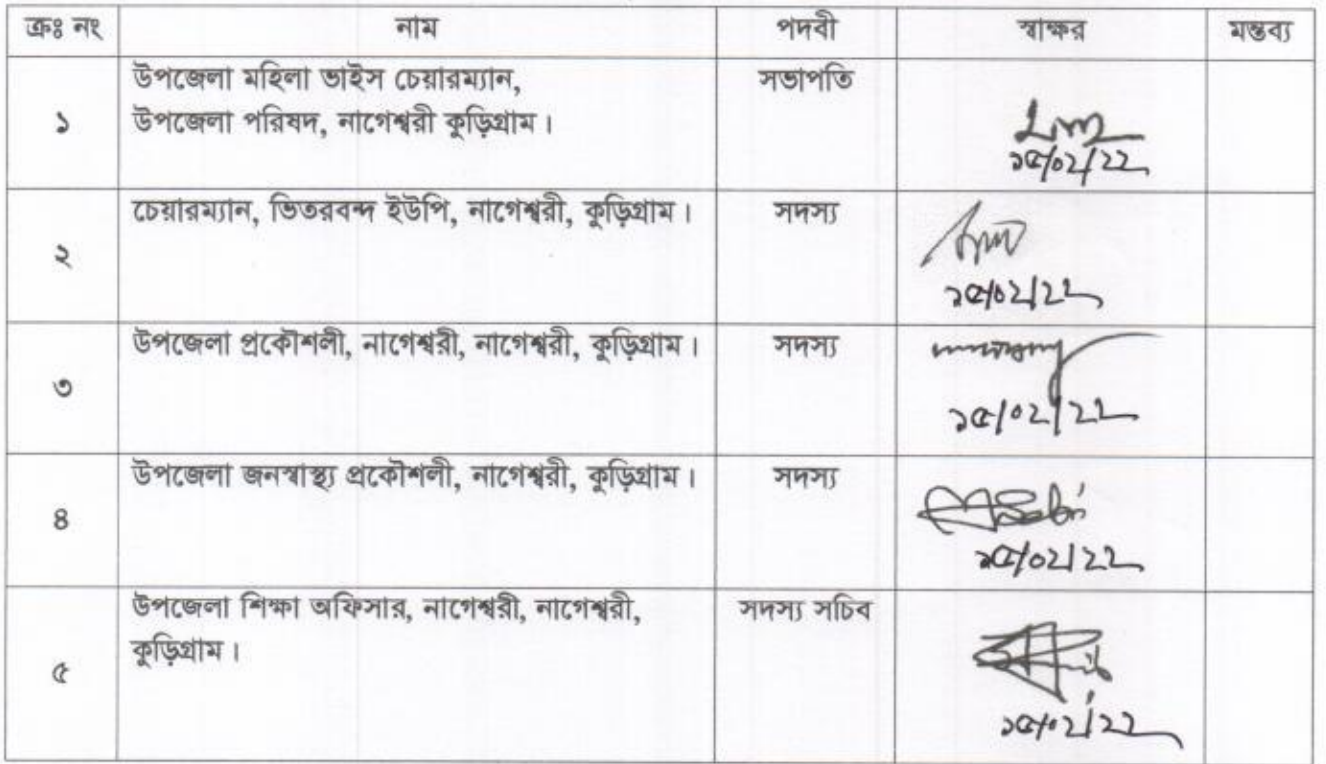 ক্রঃ নং নাম পদবী স্বাক্ষর মন্তব্য
উপজেলা মহিলা ভাইস চেয়ারম্যান, সভাপতি
১ উপজেলা পরিষদ, নাগেশ্বরী কুড়িগ্রাম।
১৫/০২/২২
চেয়ারম্যান, ভিতরবন্দ ইউপি, নাগেশ্বরী, কুড়িগ্রাম। সদস্য
২
১৫/০২/২২
উপজেলা প্রকৌশলী, নাগেশ্বরী, নাগেশ্বরী, কুড়িগ্রাম। সদস্য
৩
১৫/০২/২২
উপজেলা জনস্বাস্থ্য প্রকৌশলী, নাগেশ্বরী, কুড়িগ্রাম। সদস্য
৪
১৫/০২/২২
উপজেলা শিক্ষা অফিসার, নাগেশ্বরী, নাগেশ্বরী, সদস্য সচিব
কুড়িগ্রাম।
৫
১৫/০২/২২